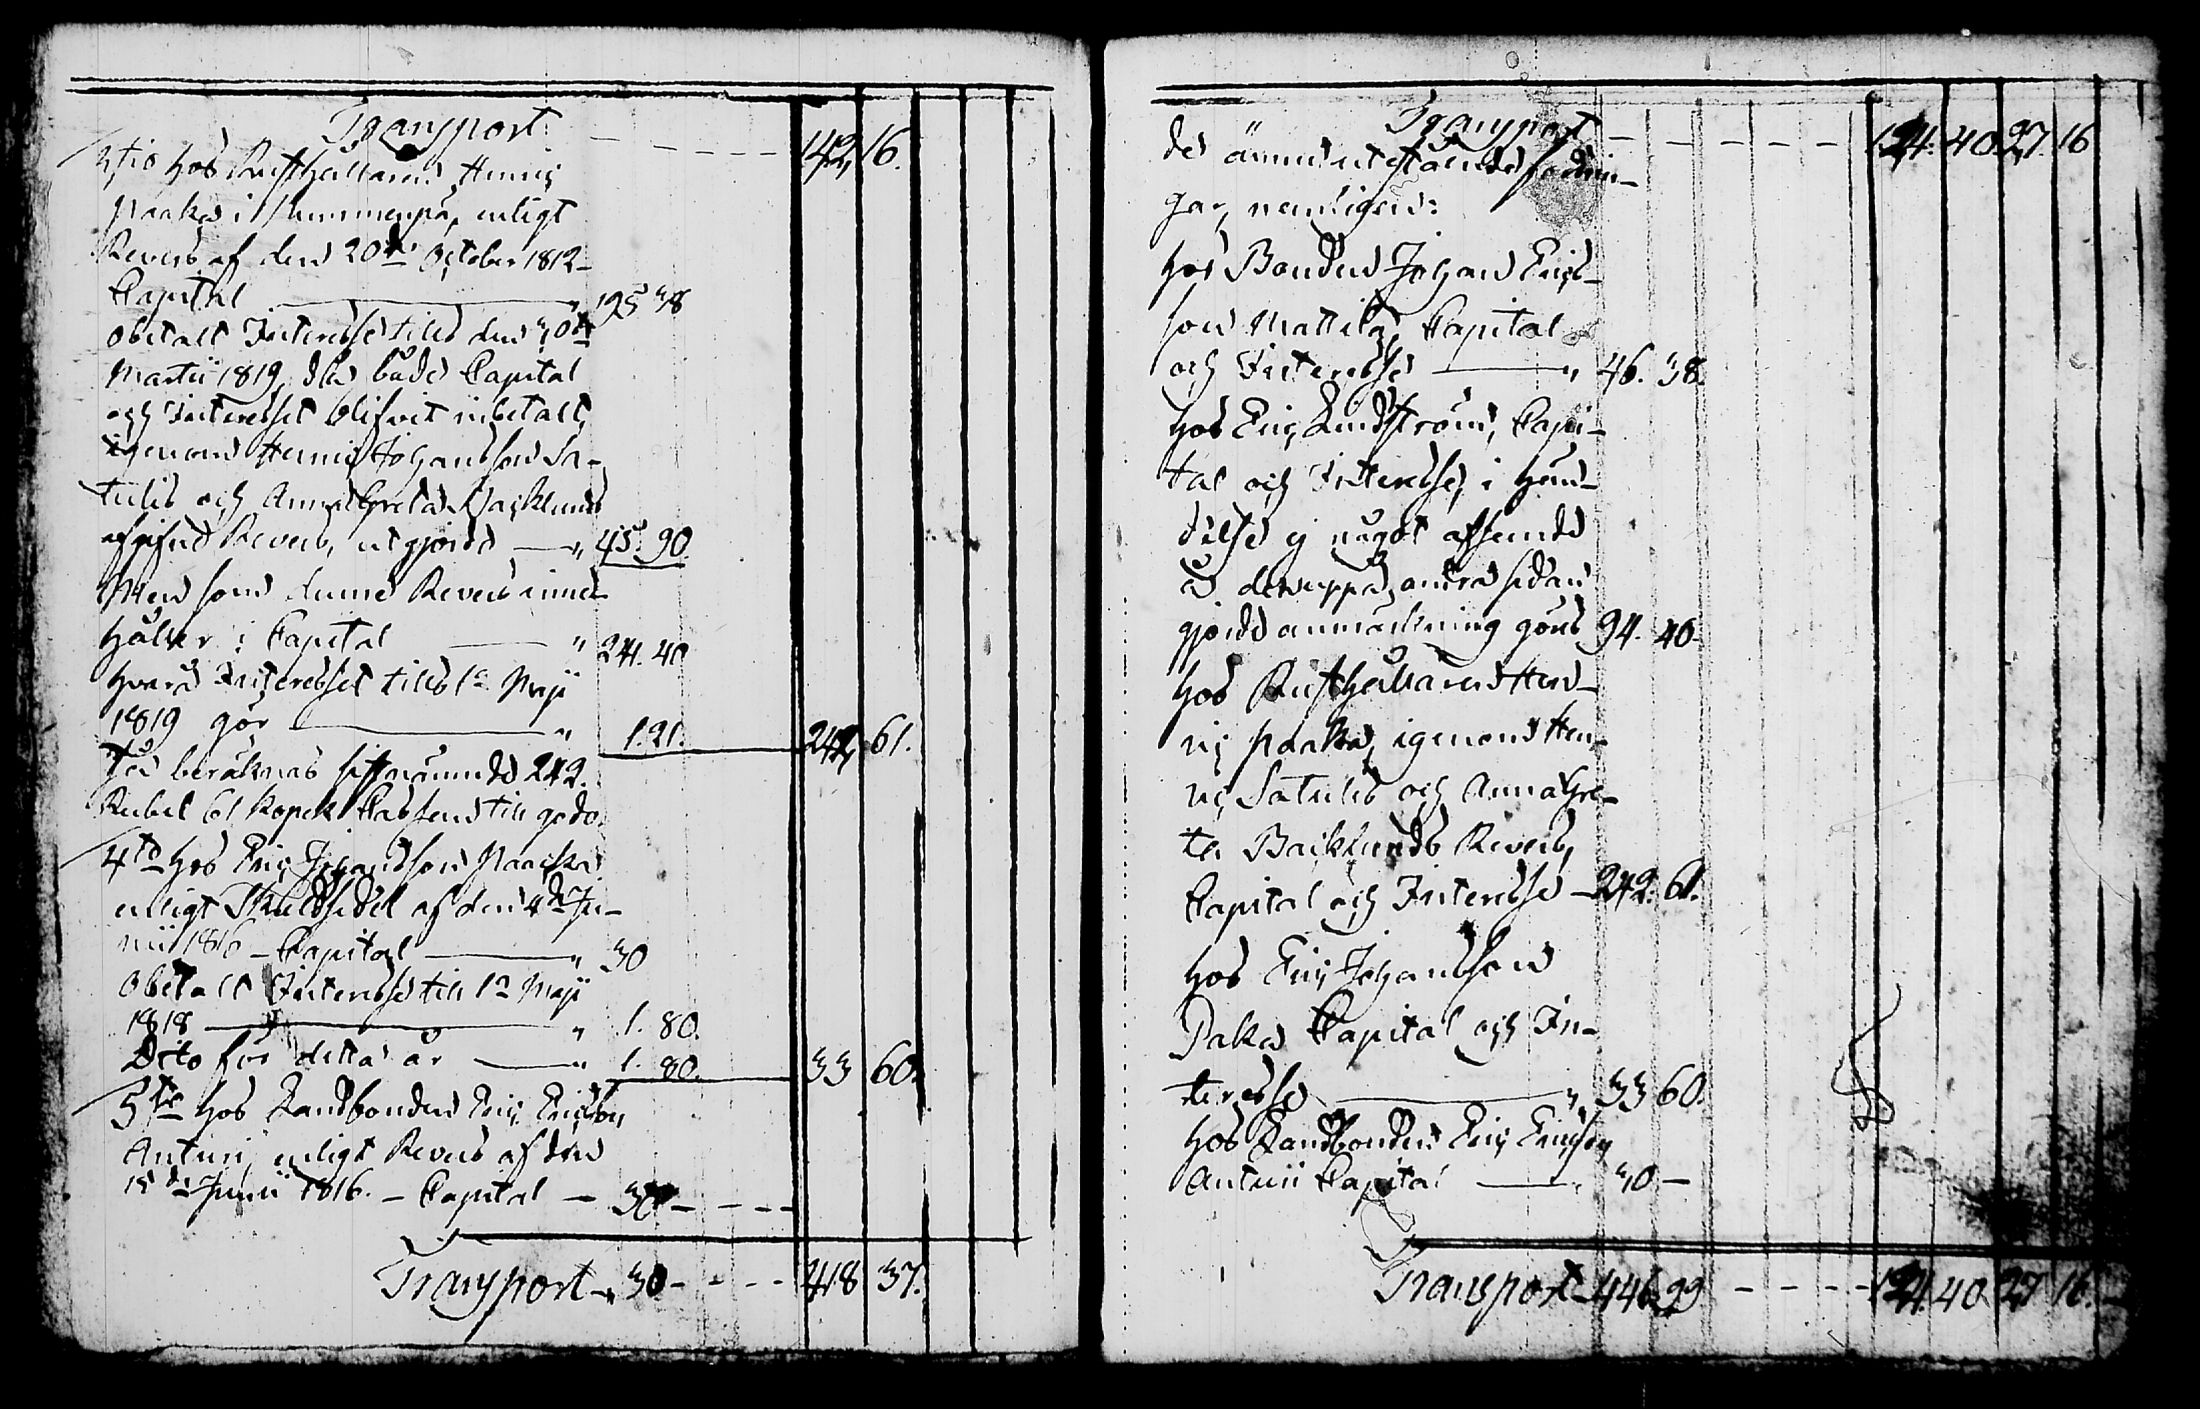 Transport - - - - - 142, 16.
3tio hos Rusthållaren Henric
Paaka i Hummenpä, enligt
Revers af den 20de October 1812 -
Capital " 195 48
Obetalt Interesse tills den 30de
Martii 1819, då både Capital
och Interesset blifvit inbetalt,
igenom Henric Johansson Sa-
tulis och Anna Greta Backlunds
afgifne Revers, utgjorde " 45. 90.
Men som denne Revers inne-
håller i Capital " 241. 40
hvarå Interesset tills 1a Maji
1819 gör " 1. 21. 242, 61.
Ty beräknas sistnämnde 242.
Rubel 61 Kopek Cassen till godo.
4to hos Eric Johansson Paaka
enligt Skuldsedel af den 4de Ju-
nii 1816 - Capital " 30
Obetalt Interesse till 1a Maji
1818 " 1. 80.
Dito för detta år " 1. 80. 33 60.
5to hos Landbonden Eric Ericsson
Anturi, enligt Revers af den
15de Junii 1816. - Capital - 30 - - - -
Transport " 30 - - - - 418 37.
Transport - - - - - 124. 40. 27. 16
de ännu utestående fordrin-
gar, nemligen:
hos Bonden Johan Erics-
son Mattila, Capital
och Interesse " 46. 38.
hos Eric Lindström, Capi-
tal och Interesse, i hän-
delse ej något afseende
å deruppå, andra sidan
gjorde anmärkning görs 94. 40.
hos Rusthållaren Hen-
ric Paaka, igenom Hen-
ric Satulis och Anna Gre-
ta Backlunds Revers,
Capital och Interesse - 242. 61.
hos Eric Johansson
Paka Capital och In-
teresse " 33 60.
hos Landbonden Eric Ericsson
Anturi Capital " 30 -
Transport - 446. 99 - - - - 124. 40 27 16.